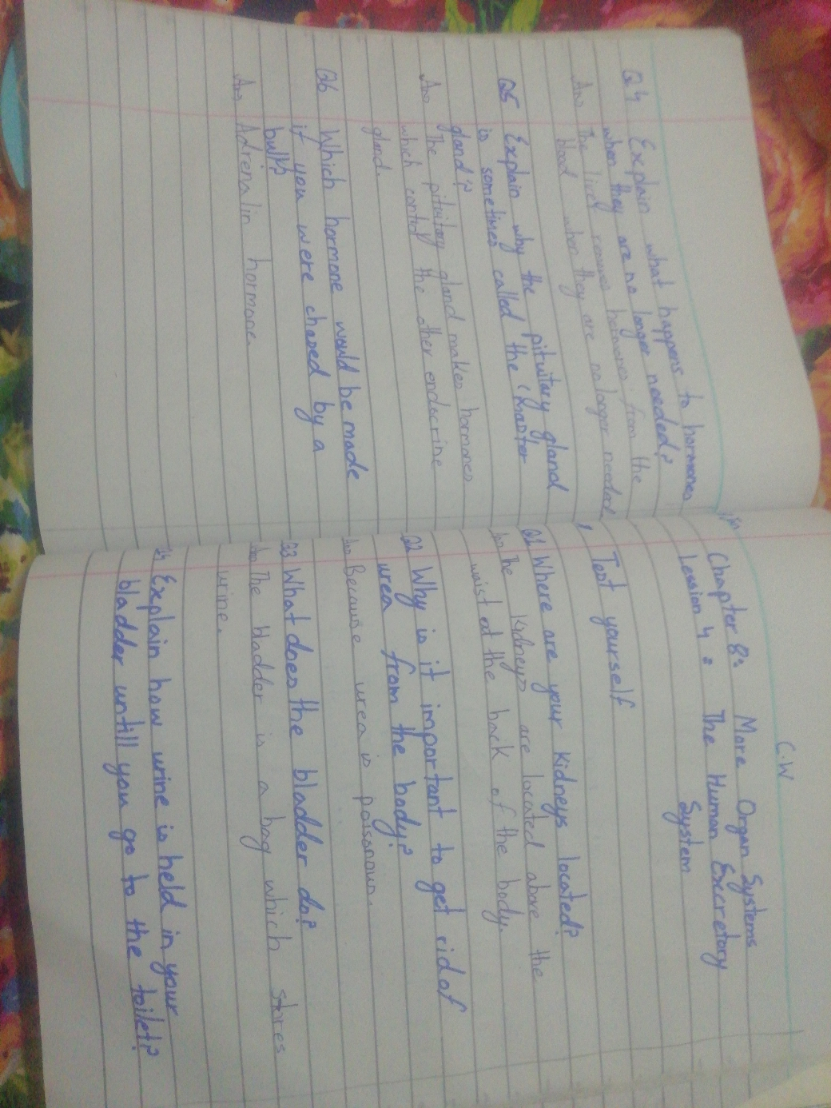 Q4 Explain what happens to hormones
when they are no longer needed?
Ans The liver remove hormones from the
blood when they are no longer needed
Q5 Explain why the pituitary gland
is sometimes called the 'master
gland'?
Ans The pituitary gland makes hormones
which control the other endocrine
gland.
Q6 Which hormone would be made
if you were chased by a
bull?
Ans Adrenalin hormone.
C.W
Chapter 8: More Organ Systems
Lession 4: The Human Excretory
System
Test yourself
Q1 Where are your kidneys located?
Ans The kidneys are located above the
waist at the back of the body.
Q2 Why is it important to get rid of
urea from the body?
Ans Because urea is poisonous.
Q3 What does the bladder do?
Ans The bladder is a bag which stores
urine.
Explain how urine is held in your
bladder untill you go to the toilet?